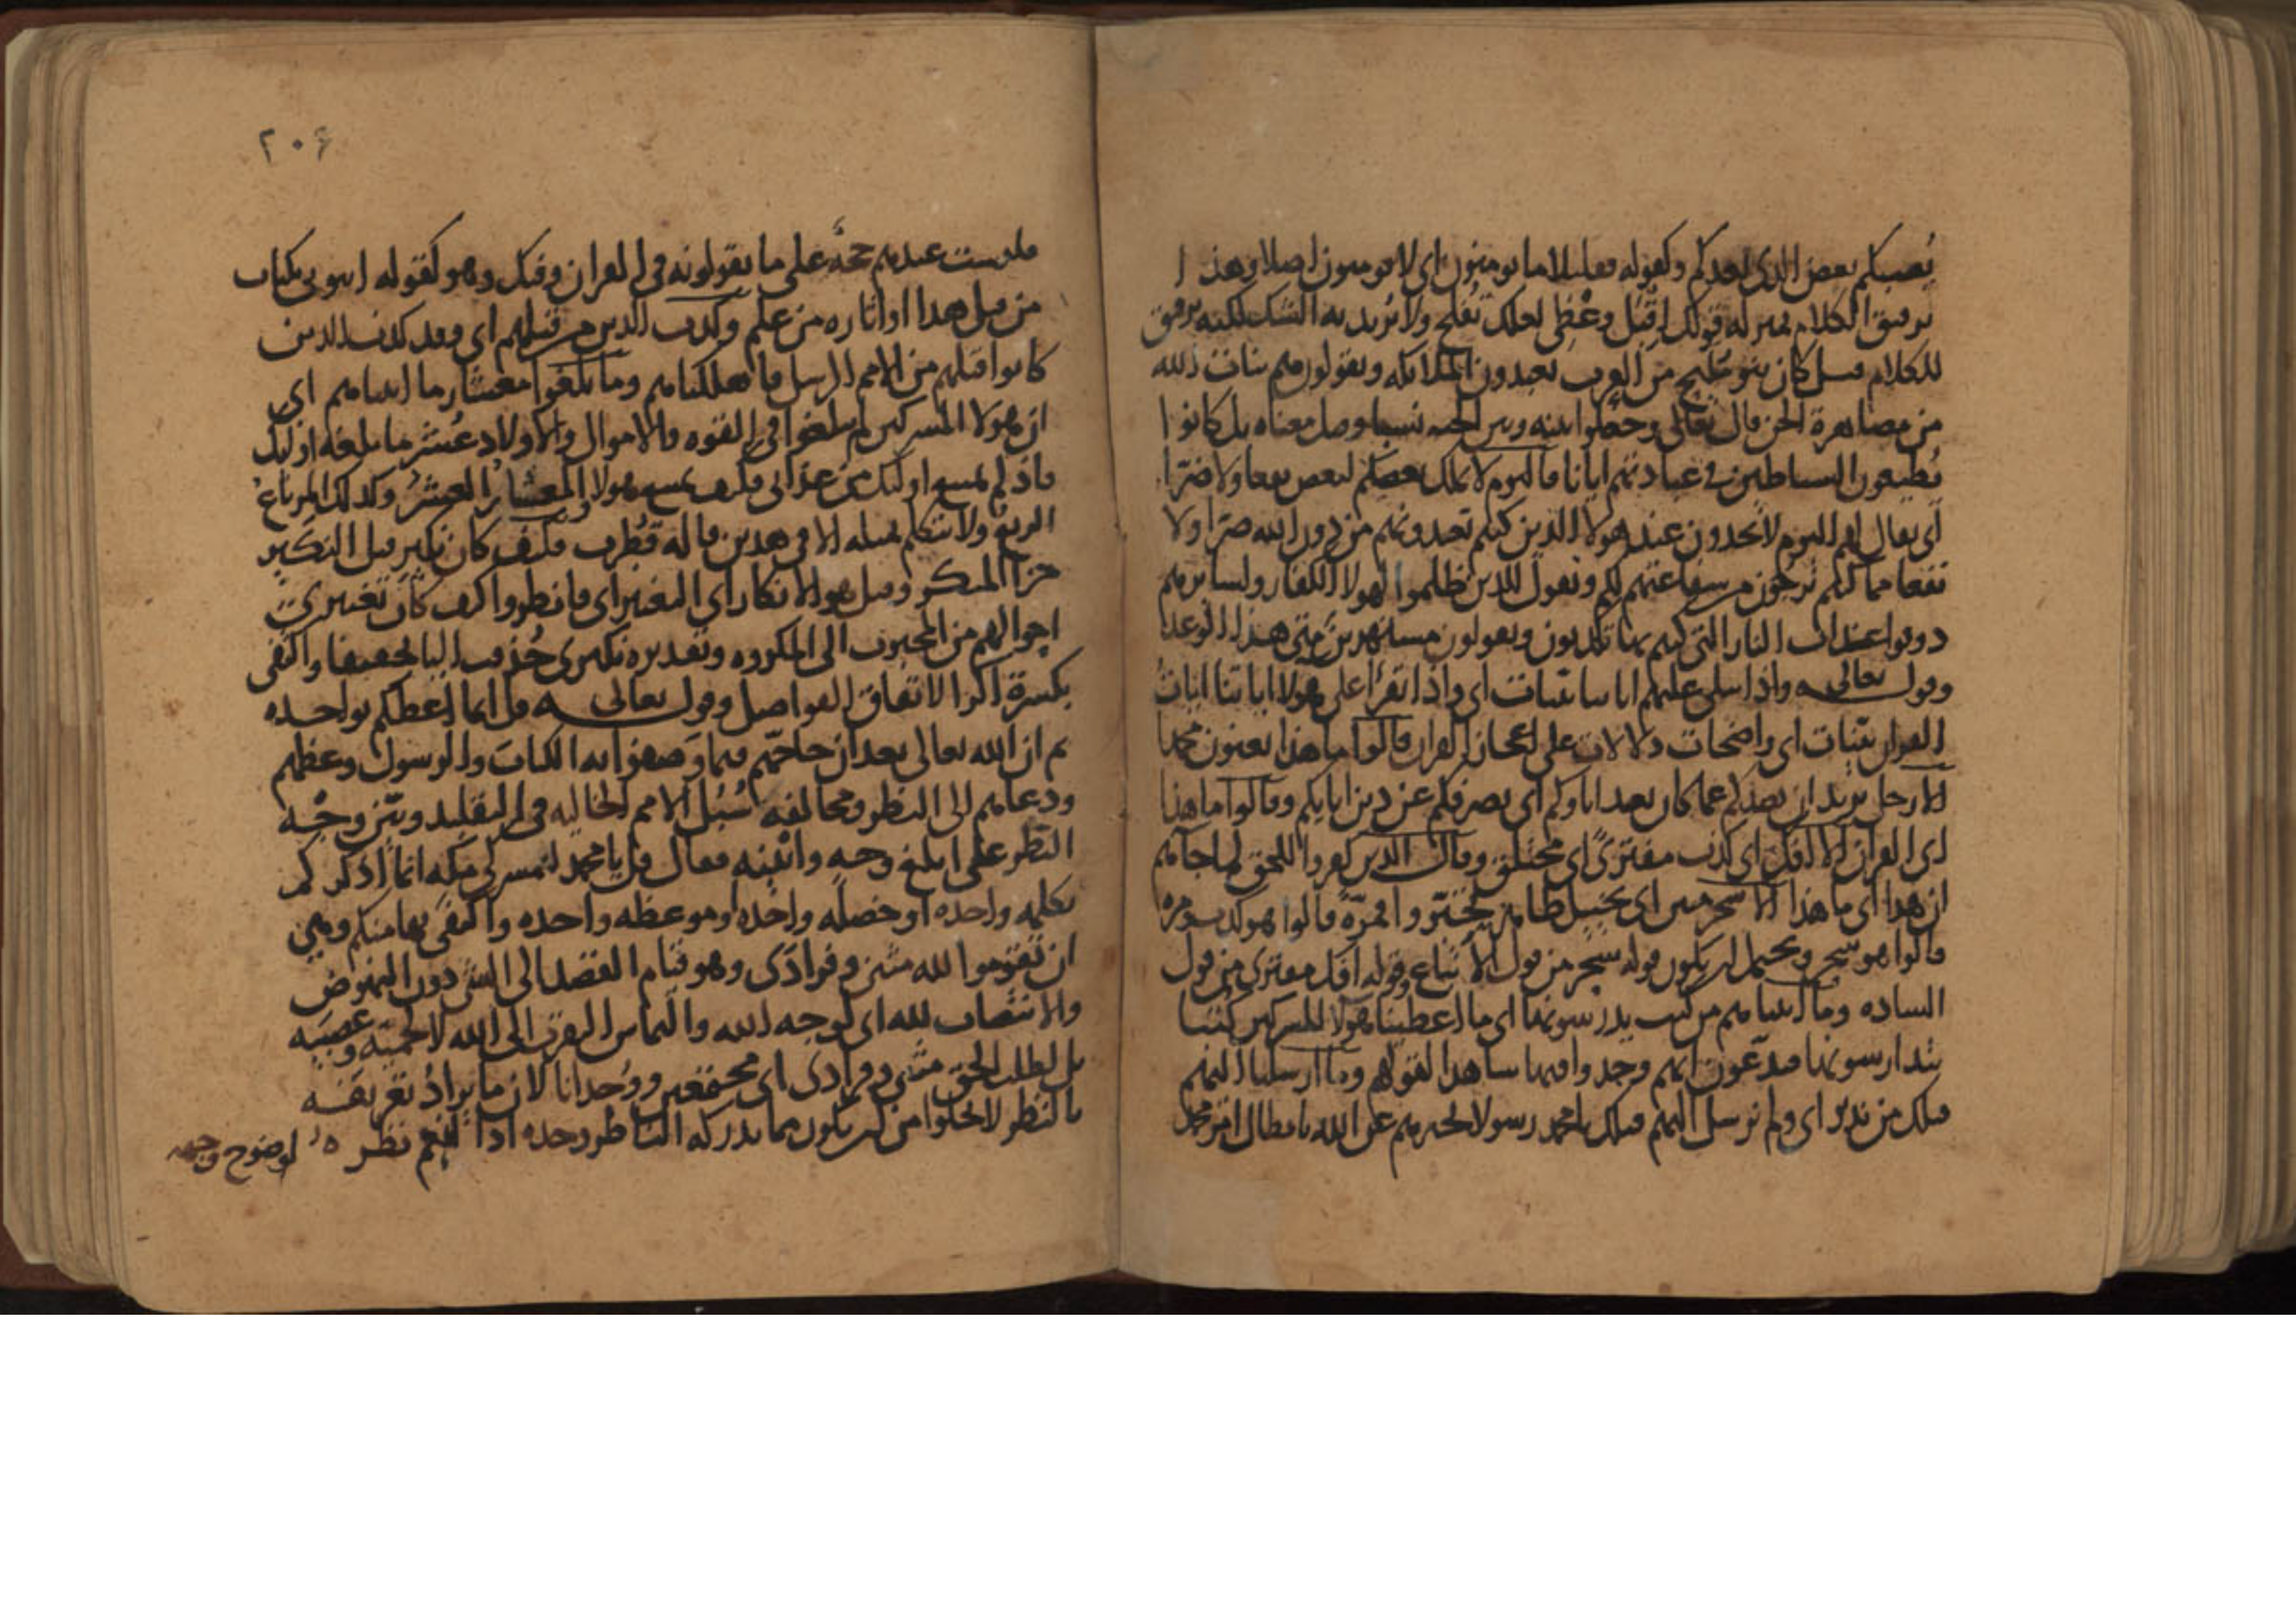 يصبكم بعض الذي يعدكم وكقوله فقليلا ما يومنون اي لا يومنون اصلا وهذا
ترقيق الكلام بمنزله قولك اقبل وعظي لعلك تفلح ولا تريد به الشك لكنه ترقيق
للكلام قيل كان بنو مليح من العرب يعبدون الملائكه ويقولون هم بنات الله
من مصاهرة الجن قال تعالى وجعلوا بينه وبين الجنه نسبا وقيل معناه بل كانوا
يطيعون الشياطين في عبادتهم ايانا فاليوم لا يملك بعضكم لبعض نفعا ولا ضرا
اي يقال لهم اليوم لا تجدون عند هولا الذين كنتم تعبدونهم من دون الله ضرا ولا
نفعا مما كنتم ترجون من شفاعتهم لكم ونقول للذين ظلموا لهولا الكفار ولسايرهم
ذوقوا عذاب النار التي كنتم بها تكذبون ويقولون مستهزين متى هذا الوعد
وقوله تعالى واذا تتلى عليهم اياتنا بينات اي واذا تقرأ على هولا اياتنا ايات
القران بينات اي واضحات دلالات على اعجاز القران قالوا ما هذا يعنون محمدا
الا رجل يريد ان يصدكم عما كان يعبد اباوكم اي يصرفكم عن دين ابايكم وقالوا ما هذا
اي القران الا افك اي كذب مفترى اي مختلق وقال الذين كفروا للحق لما جاهم
ان هذا اي ما هذا الا سحر مبين اي تخييل ظاهر تحيّروا فمرّة قالوا هو كذب ومره
قالوا هو سحر ويحتمل ان يكون قوله سحر من قول الاتباع وقوله افك مفترى من قول
الساده وما اتيناهم من كتب يدرسونها اي ما اعطينا هولا المشركين كتبا
يتدارسونها فيدّعون انهم وجدوا فيها شاهدا لقولهم وما ارسلنا اليهم
قبلك من نذير اي ولم نرسل اليهم قبلك يا محمد رسولا يخبرهم عن الله بابطال امر محمد
٢٠٤
فليست عندهم حجة على ما يقولونه في القران وفيك وهو كقوله ايتوني بكتاب
من قبل هذا او اثاره من علم وكذب الذين من قبلهم اي وقد كذب الذين
كانوا قبلهم من الامم الرسل فاهلكناهم وما بلغوا معشار ما اتيناهم اي
ان هولا المشركين لم يبلغوا في القوه والاموال والاولاد عُشر ما بلغه اوليك
فاذ لم يمنع اوليك من عذابي فكيف يمنع هولا والمعشار العشر وكذلك المرباع
الربع ولا يتكلم بمثله الا في هذين قاله قُطرب فكيف كان نكير قيل النكير
جزا المنكر وقيل هو الانكار اي التغيير اي فانظروا كيف كان تغييري
احوالهم من المحبوب الى المكروه وتقديره نكيري حُذفت اليا تخفيفا واكتفى
بكسرة الرا لاتفاق الفواصل وقوله تعالى قل انما اعظكم بواحده
ثم ان الله تعالى بعد ان حاجّهم فيما وصفوا به الكتاب والرسول وعظهم
ودعاهم الى النظر ومخالفه سُبُل الامم الخاليه في التقليد وبيّن وجْه
النظر على ابلغ وجه واثبته فقال قل يا محمد لمشركي مكه انما اذكركم
بكلمه واحده او خصله واحده او موعظه واحده واكتفي بها منكم وهي
ان تقوموا لله مثنى وفرادى وهو قيام القصد الى الشي دون النهوض
والانتصاب لله اي لوجه الله والتماس التقرب الى الله لا لحميّه وعصبيه
بل لطلب الحق مثنى وفرادى اي مجتمعين ووُحدانا لان ما يُراد تعريفه
بالنظر لا يخلوا من ان يكون مما يدركه الناظر وحده اذا انعم نظره لوضوح وجهه